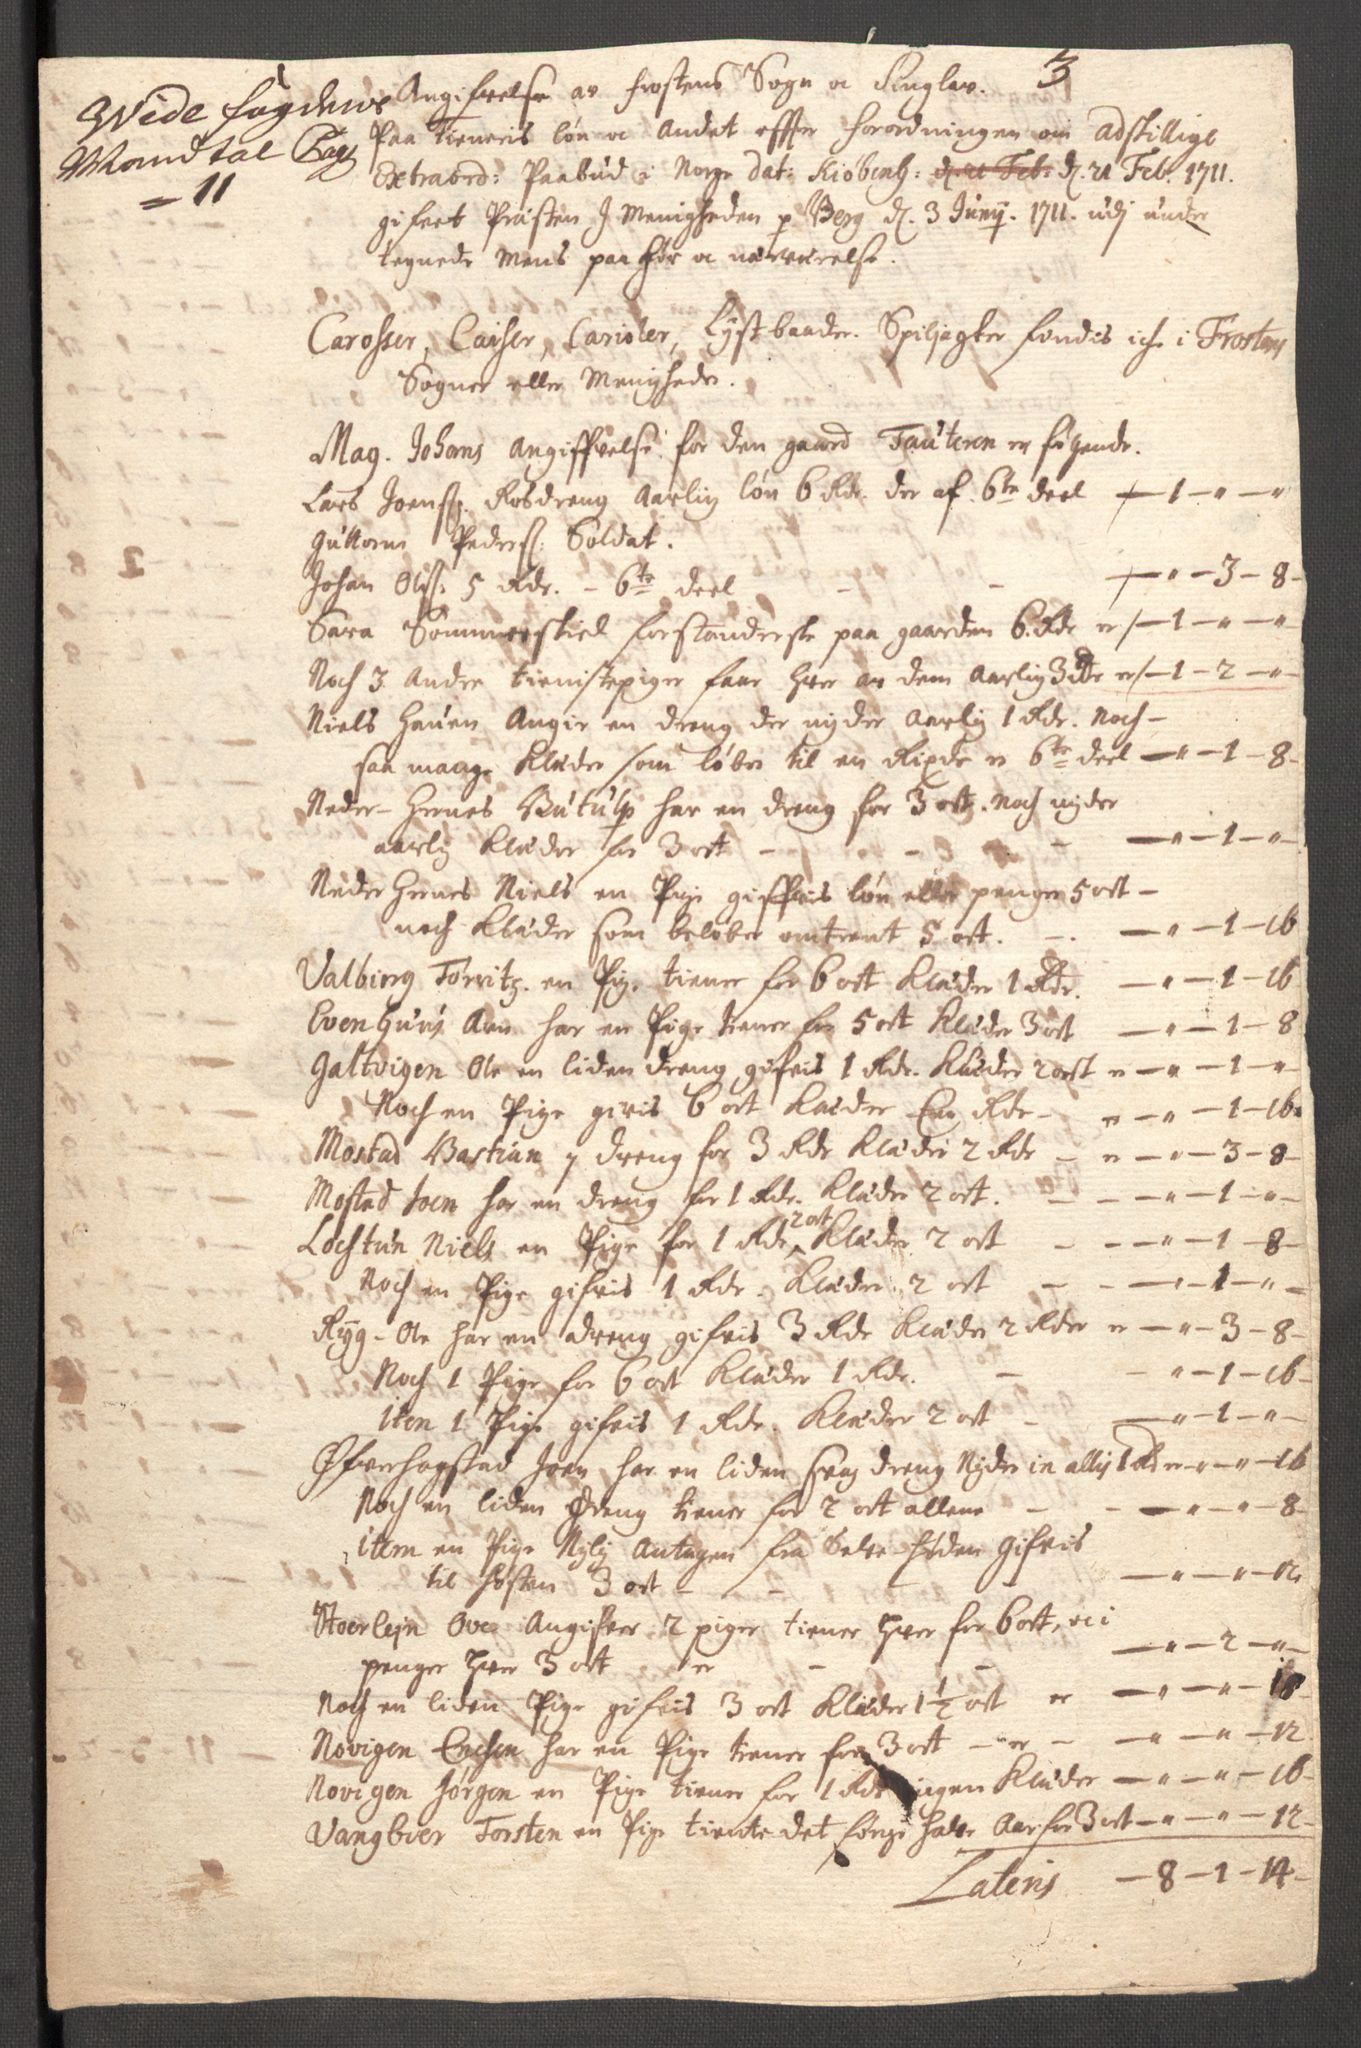 3
Wide fogdens
Mandtal Pag
= 11
Angifvelse av frostens Sogn a Tinglav.
Paa tieneris løn a andet effter forordningen om adskillige
Extraord: Paabud i Norge dat: Kiøbenh: d. 21 Feb: d. 21 Feb. 1711.
gifvet Præsten J Menigheden p Berg d. 3 Junij. 1711. udj under
tegnede Mens paahør a nærværelse.
Carosser, Caiser, Carioler, Lystbaader. Spiljagter findis iche i Frosten
Sogner eller Menighede.
Mag. Johans Angiffvelse for den gaard Tauteren er følgende.
Lars Joenss. Rosdreng Aarlig løn 6 Rdr. der af 6te deel — 1 - " - "
Guttorm Pederss: Soldat.
Johan Olss: 5 Rdr. - 6te deel - - — " - 3 - 8 -
Sara Sommerskiel forstanderske paa gaarden 6. Rdr er — 1 - " - "
Noch 3 andre tienistepiger faar hver av dem Aarlig 3 Rdr er — 1 - 2 - " -
Niels Hauen Angir en dreng der nyder Aarlig 1 Rdr. Noch -
saa mange Klæder som løber til en Rixdr er 6te deel — " - 1 - 8 -
Neder-Hernes Rutulp har en dreng for 3 ort. noch nyder
aarlig Klæder for 3 ort - - - — " - 1 - " -
Neder Hernes Niels en Pige giffvis løn eller penger 5 ort -
noch Klæder som beløber omtrent 5 ort. - — " - 1 - 16
Valberg Torvitz. en Pige tiener for 6 ort Klæder 1 Rdr. — " - 1 - 16
Even Huus Arn har en Pige tiener for 5 ort Klæder 3 ort — " - 1 - 8
Galtvigen Ole en liden dreng gifvis 1 Rdr. Klæder 2 ort er — " - 1 - "
Noch en Pige givis 6 ort Klæder En Rdr - er — " - 1 - 16
Mostad Bastian 1 dreng for 3 Rdr Klæder 2 Rdr - er — " - 3 - 8 -
Mostad Joen har en dreng for 1 Rdr. Klæder 2 ort. - - — " - 1 - " -
Lochtun Niels en Pige for 1 Rdr 2 ort Klæder 2 ort - - — " - 1 - 8 -
Noch en Pige gifvis 1 Rdr. Klæder 2 ort - - — " - 1 - " -
Ryg-Ole har en dreng gifvis 3 Rdr Klæder 2 Rdr er — " - 3 - 8 -
Noch 1 Pige for 6 ort Klæder 1 Rdr. - - " - 1 - 16 -
item 1 Pige gifvis 1 Rdr. Klæder 2 ort - — " - 1 - " -
Øfverhagstad Joen har en liden svag dreng Nyder in allis 1 Rd er - " - " - 16
Noch en liden dreng tiener for 2 ort allene - - — " - " - 8 -
item en Pige Nylig Antagen fra Selve-føden Gifvis
til høsten 3 ort - - - — " - " - 12
Stoerlejn Ove Angifver 2 piger tiener hver for 6 ort, a i
penger hver 3 ort er - - — " - 2 - " -
Noch en liden Pige gifvis 3 ort Klæder 1½ ort er — " - " - 18 -
Novigen Erchen har en Pige tiener for 3 ort - er - — " - " - 12
Novigen Jørgen en Pige tiener for 1 Rdr ingen Klæder — " - " - 16 -
Vangberr Torsten en Pige tiente det første halve Aar for 3 ort — " - " - 12 -
Lateris — 8 - 1 - 14 -